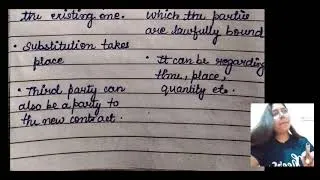 the existing one.
• Substitution takes
place
• Third party can
also be a party to
the new contract.
which the parties
are lawfully bound
• It can be regarding
time, place,
quantity etc.